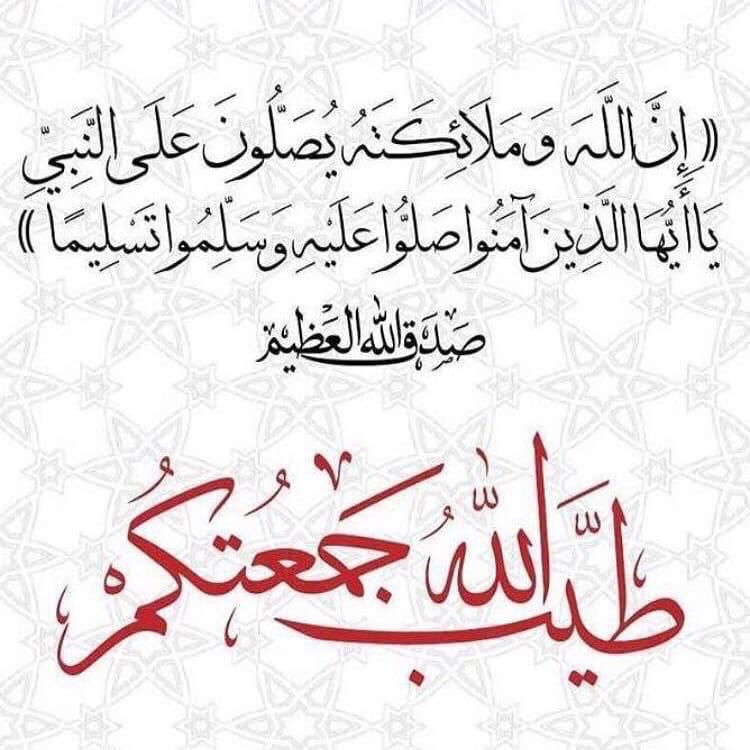 (( إِنَّ اللَّهَ وَمَلَائِكَتَهُ يُصَلُّونَ عَلَى النَّبِيِّ
يَا أَيُّهَا الَّذِينَ آمَنُوا صَلُّوا عَلَيْهِ وَسَلِّمُوا تَسْلِيمًا ))
صَدَقَ اللهُ العَظِيمُ
طَيَّبَ اللهُ جُمُعَتَكُمْ